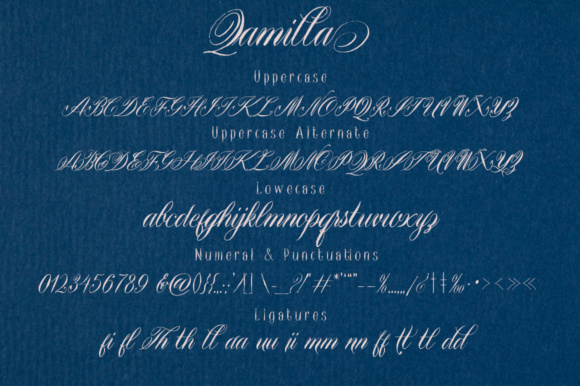 Qamilla
Uppercase
ABCDEFGHIJKLMNOPQRSTUVWXYZ
Uppercase Alternate
ABCDEFGHIJKLMNOPQRSTUVWXYZ
Lowecase
abcdefghijklmnopqrstuvwxyz
Numeral & Punctuations
0123456789 &@(){}[]
Ligatures
fi fl Th th ll aa uu ii mm nn ff tt tl dd